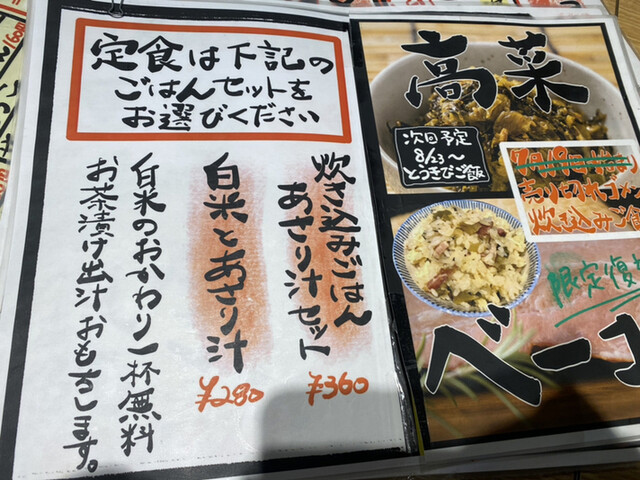 定食は下記の
ごはんセットを
お選びください
炊き込みごはん
あさり汁セット
¥360
白米とあさり汁
¥280
白米のおかわり一杯無料
お茶漬け出汁おもちします。
高菜
次回予定
8/23～
とうきびご飯
炊込みご
限定復
ベーコ